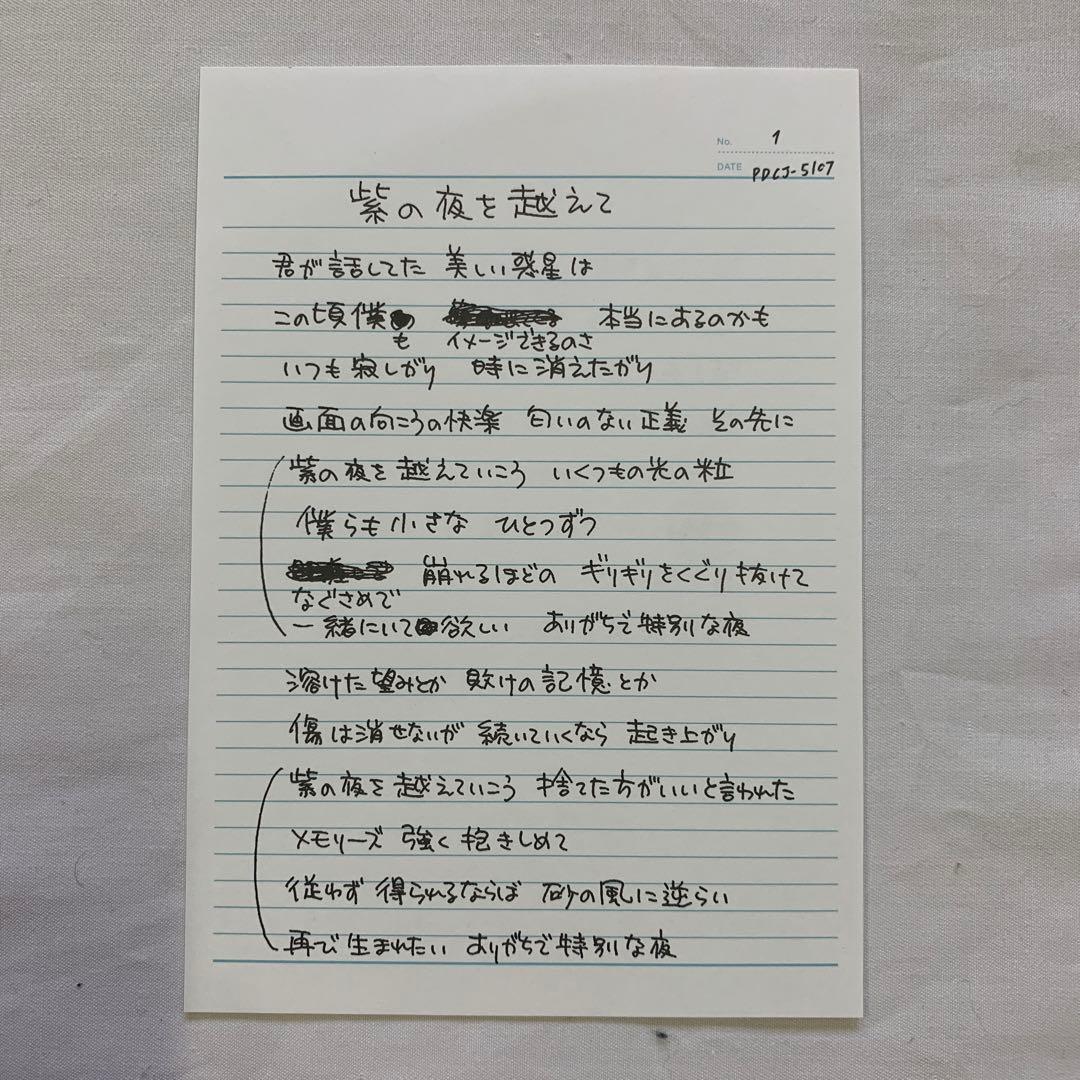 No. 1
DATE PDCJ-5107
紫の夜を越えて
君が話してた 美しい惑星は
この頃僕 本当にあるのかも
も イメージできるのさ
いつも寂しがり 時に消えたがり
画面の向こうの快楽 匂いのない正義 その先に
紫の夜を越えていこう いくつもの光の粒
僕らも小さな ひとつずつ
崩れるほどの ギリギリをくぐり抜けて
なぐさめで
一緒にいて欲しい ありがちで特別な夜
溶けた望みとか 敗けの記憶とか
傷は消せないが 続いていくなら 起き上がり
紫の夜を越えていこう 捨てた方がいいと言われた
メモリーズ 強く抱きしめて
従わず 得られるならば 砂の風に逆らい
再び生まれたい ありがちで特別な夜